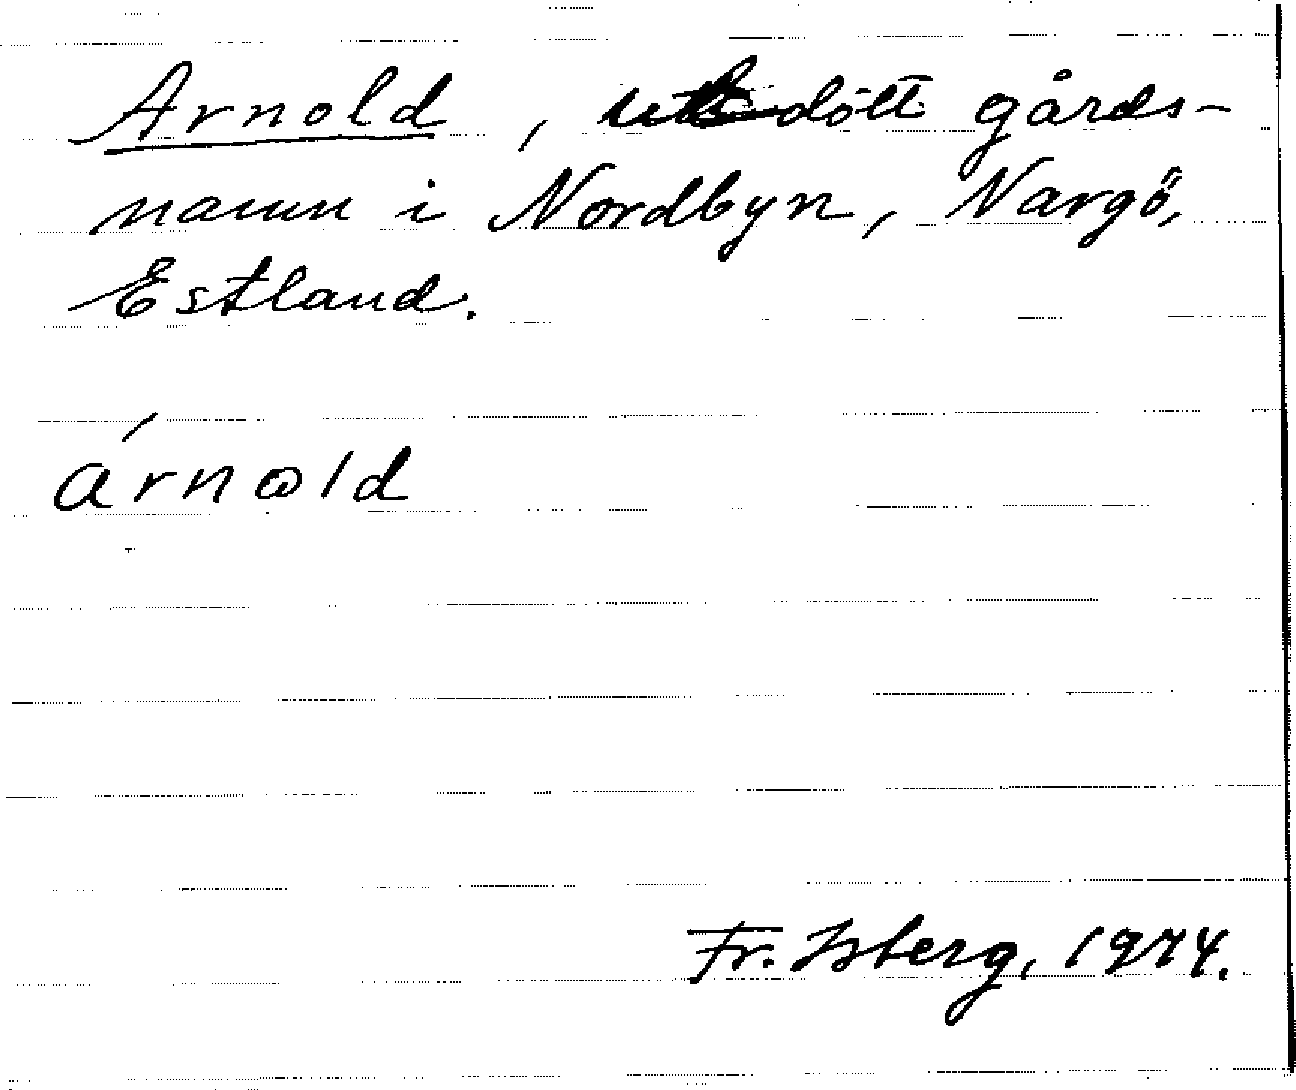 Arnold, utdött gårds-
namn i Nordbyn, Nargö,
Estland.
árnωld
Fr. Isberg, 1974.